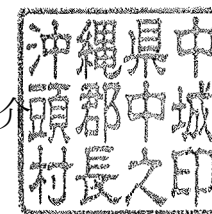 沖縄県中
介
頭郡中城
村長之印